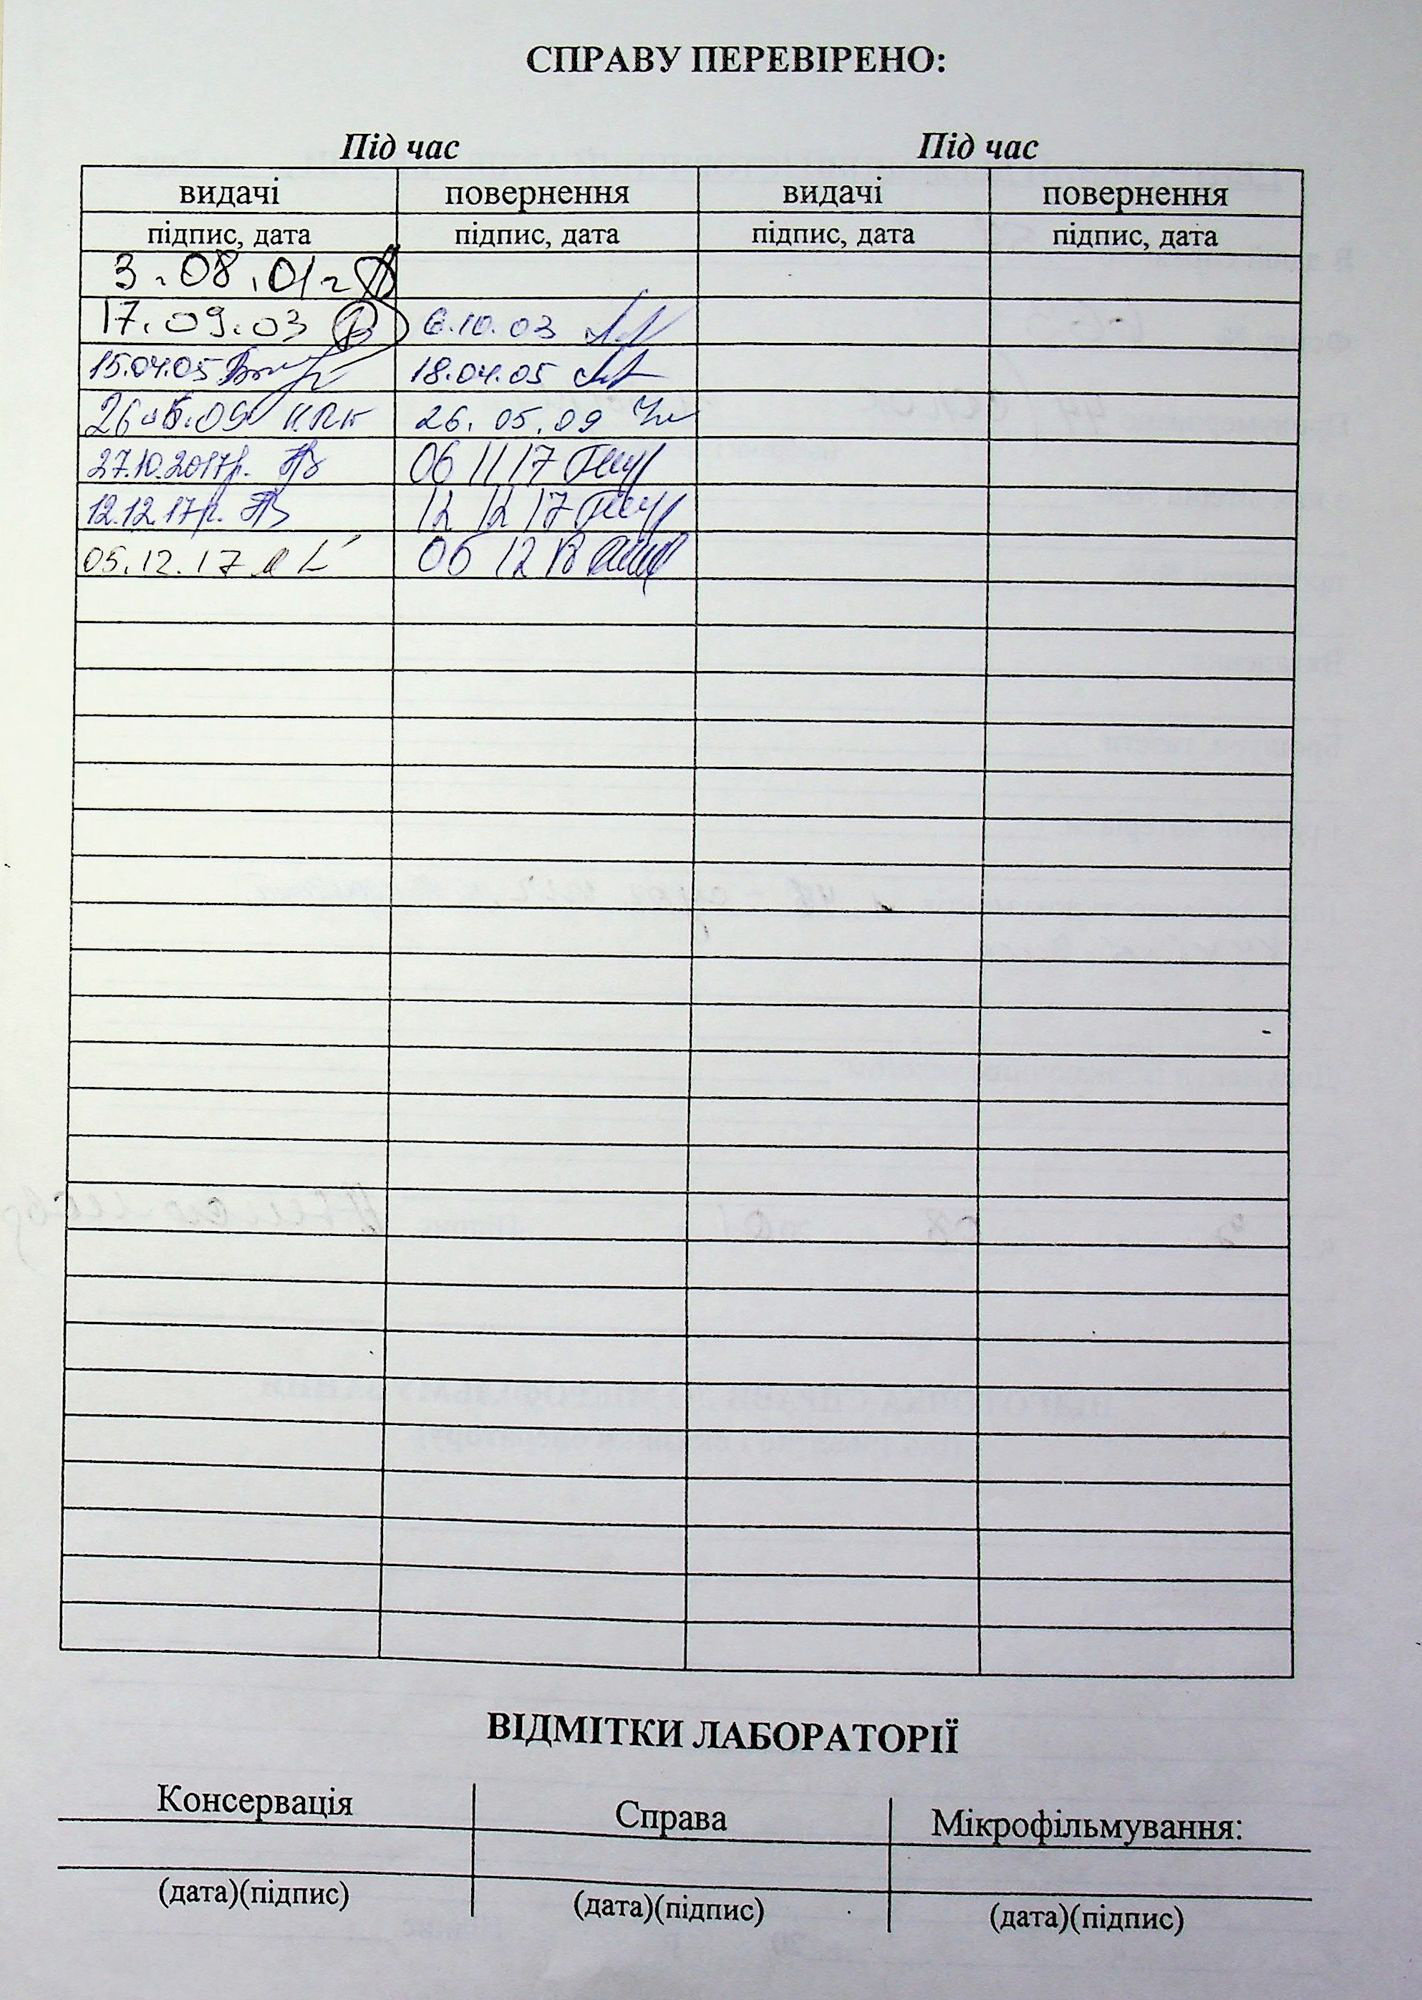 СПРАВУ ПЕРЕВІРЕНО:
Під час Під час
видачі повернення видачі повернення
підпис, дата підпис, дата підпис, дата підпис, дата
3.08.01г
17.09.03 6.10.03
15.04.05 18.04.05
26.05.09 26.05.09
27.10.2017р. 06 11 17
12.12.17р. 12 12 17
05.12.17 06 12
ВІДМІТКИ ЛАБОРАТОРІЇ
Консервація Справа Мікрофільмування:
(дата)(підпис) (дата)(підпис) (дата)(підпис)